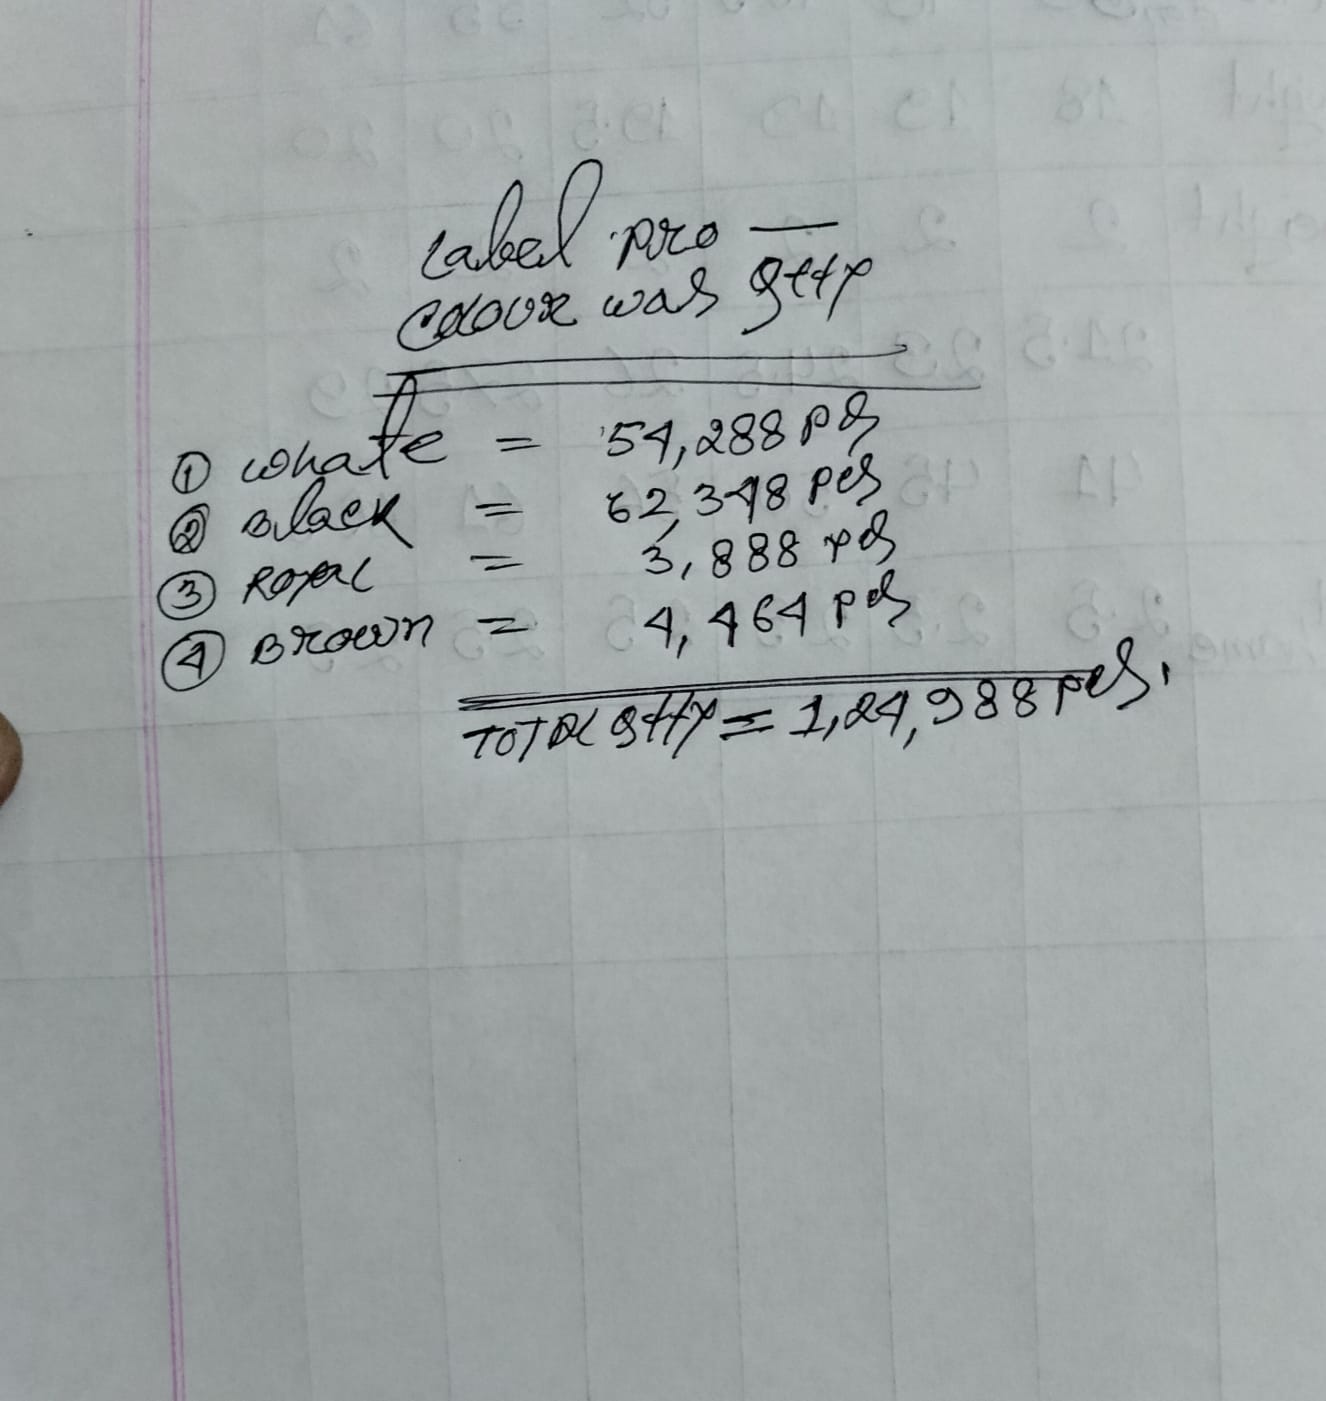 Label pro —
colour was qtty
① white = 54,288 pcs
② Black = 62,348 pcs
③ Royal = 3,888 pcs
④ Brown = 4,464 pcs
TOTAL qtty = 1,24,988 pcs.